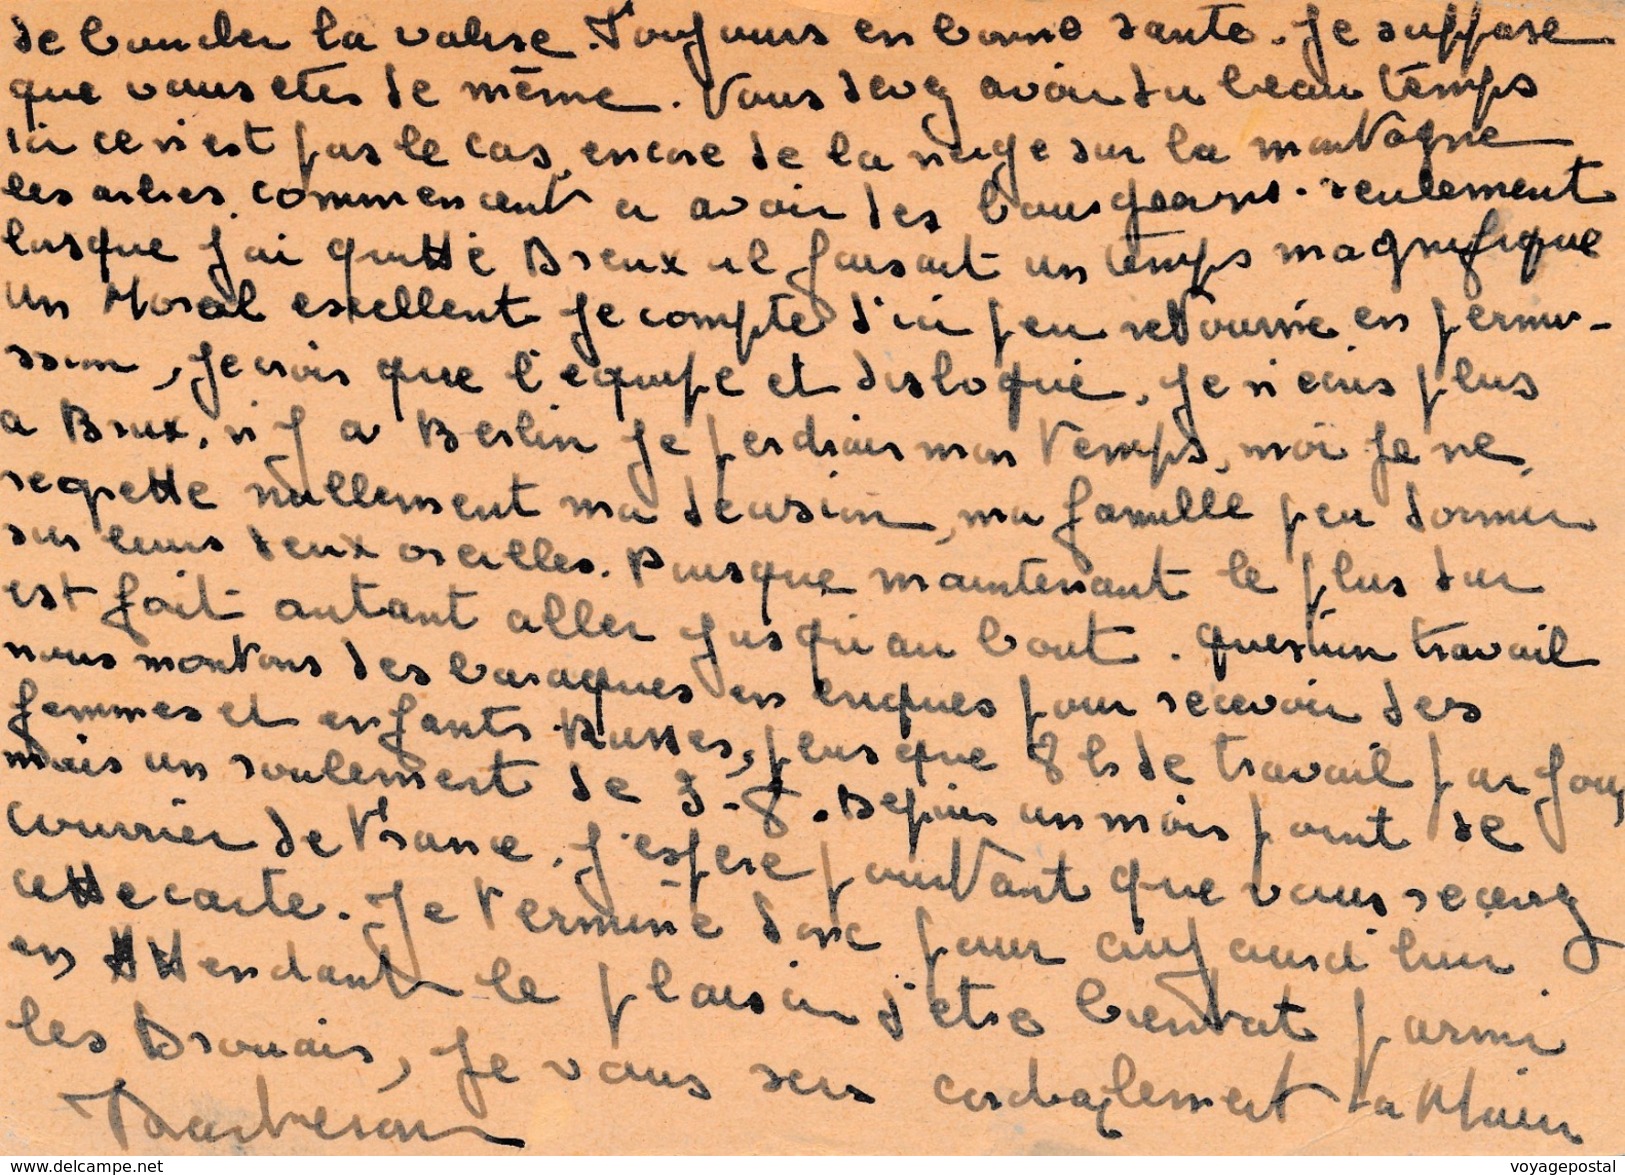 de boucler la valise. Toujours en bonne sante. Je suppose
que vous etes de même. Vous devez avoir du beau temps
ici ce n'est pas le cas, encore de la neige sur la montagne
les arbres commencent a avoir des bourgeons. seulement
lorsque j'ai quitté Dreux il faisait un temps magnifique
un Moral exellent je compte d'ici peu retourné en permi-
ssion, je crois que l'equipe et disloqué. je n'ecris plus
a Brux, ni a Berlin je perdrais mon temps, moi je ne
regrette nullement ma decision, ma famille peu dormir
sur leurs deux oreilles. Puisque maintenant le plus dur
est fait autant aller jusqu'au bout. question travail
nous montons des baraques en briques pour recevoir des
femmes et enfants Russes, plus que 8 h de travail par jour
mais un roulement de 3-8. Depuis un mois point de
courrier de France. J'espere pourtant que vous recevez
cette carte. Je termine donc pour aujourd'hui
en Attendant le plaisir d'etre bientot parmi
les Drouais, je vous sers cordialement la Main
voyagepostal
www.delcampe.net